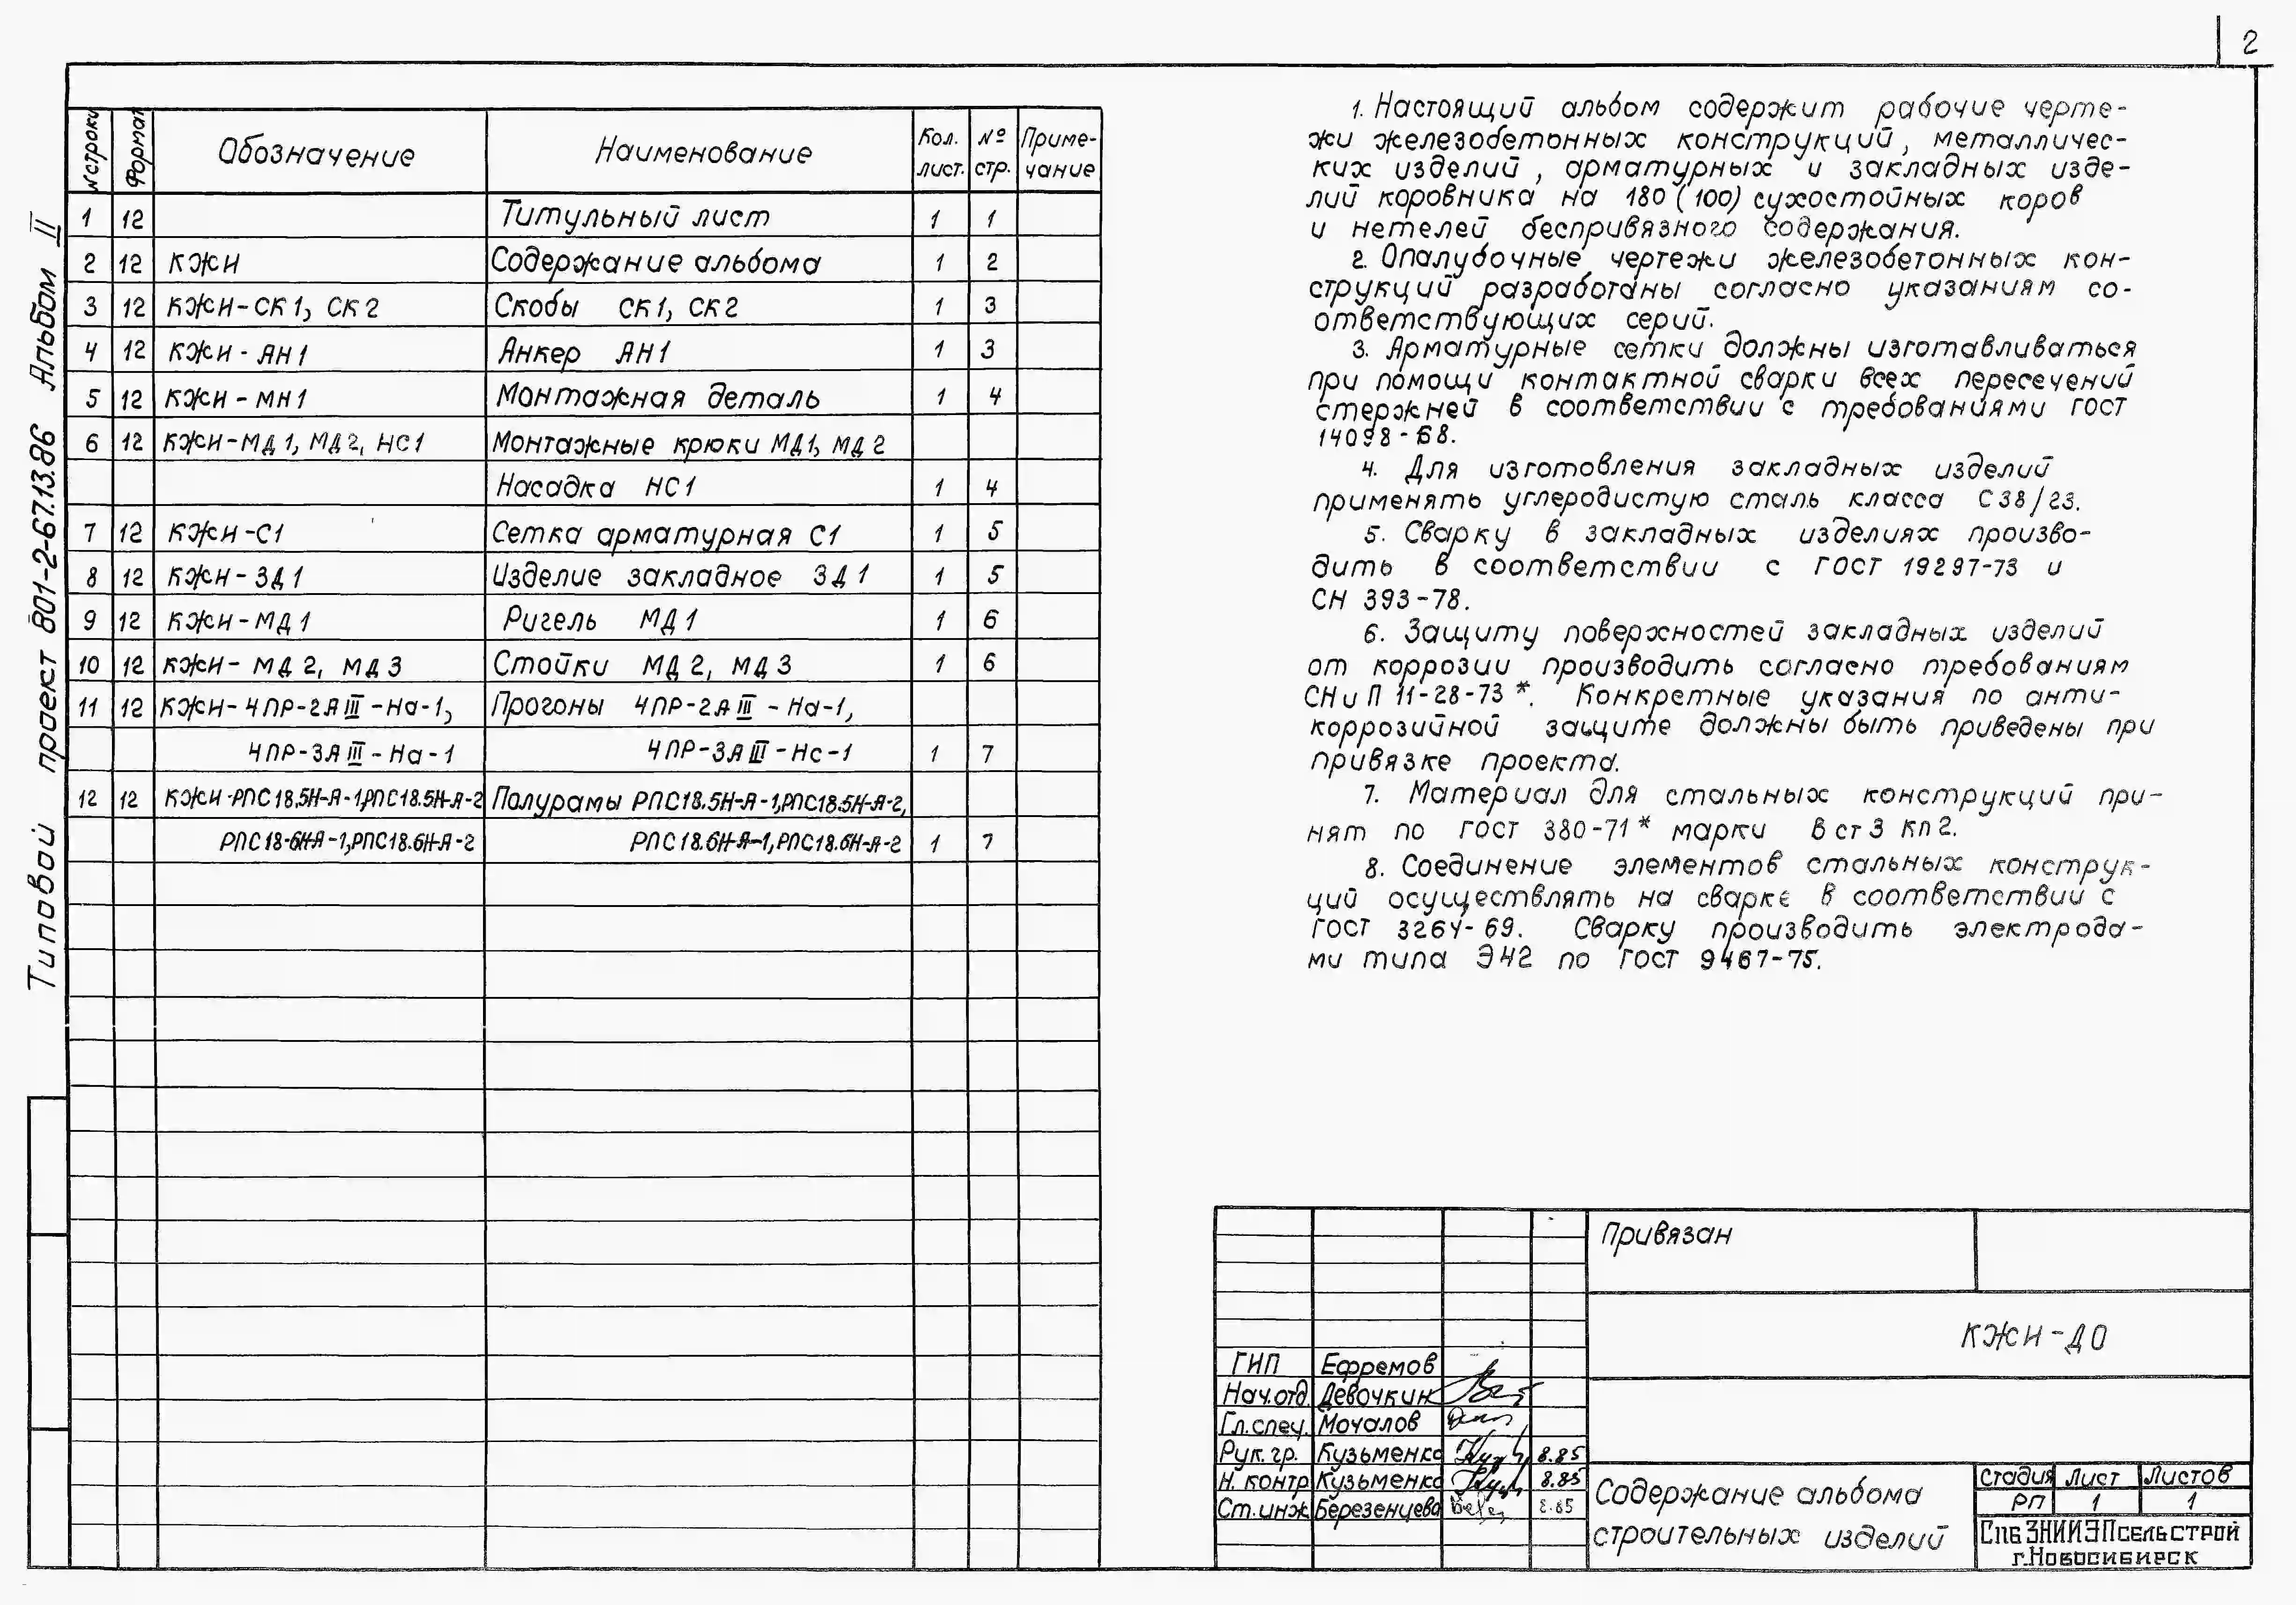 2
Типовой проект 801-2-67.13.86 Альбом II
N строки Формат Обозначение Наименование Кол. лист. № стр. Приме-чание
1 12 Титульный лист 1 1
2 12 КЖИ Содержание альбома 1 2
3 12 КЖИ-СК1, СК2 Скобы СК1, СК2 1 3
4 12 КЖИ-АН1 Анкер АН1 1 3
5 12 КЖИ-МН1 Монтажная деталь 1 4
6 12 КЖИ-МД1, МД2, НС1 Монтажные крюки МД1, МД2
Насадка НС1 1 4
7 12 КЖИ-С1 Сетка арматурная С1 1 5
8 12 КЖИ-ЗД1 Изделие закладное ЗД1 1 5
9 12 КЖИ-МД1 Ригель МД1 1 6
10 12 КЖИ-МД2, МД3 Стойки МД2, МД3 1 6
11 12 КЖИ-4ПР-2АIII-На-1, Прогоны 4ПР-2АIII-На-1,
4ПР-3АIII-На-1 4ПР-3АIII-Нс-1 1 7
12 12 КЖИ-РПС18.5Н-А-1,РПС18.5Н-А-2 Полурамы РПС18.5Н-А-1,РПС18.5Н-А-2,
РПС18-6Н-А-1,РПС18.6Н-А-2 РПС18.6Н-А-1,РПС18.6Н-А-2 1 7
1. Настоящий альбом содержит рабочие черте-
жи железобетонных конструкций, металличес-
ких изделий, арматурных и закладных изде-
лий коровника на 180 (100) сухостойных коров
и нетелей беспривязного содержания.
2. Опалубочные чертежи железобетонных кон-
струкций разработаны согласно указаниям со-
ответствующих серий.
3. Арматурные сетки должны изготавливаться
при помощи контактной сварки всех пересечений
стержней в соответствии с требованиями ГОСТ
14098-68.
4. Для изготовления закладных изделий
применять углеродистую сталь класса С38/23.
5. Сварку в закладных изделиях произво-
дить в соответствии с ГОСТ 19297-73 и
СН 393-78.
6. Защиту поверхностей закладных изделий
от коррозии производить согласно требованиям
СНиП II-28-73*. Конкретные указания по анти-
коррозийной защите должны быть приведены при
привязке проекта.
7. Материал для стальных конструкций при-
нят по ГОСТ 380-71* марки ВСт3 кп2.
8. Соединение элементов стальных конструк-
ций осуществлять на сварке в соответствии с
ГОСТ 5264-69. Сварку производить электрода-
ми типа Э42 по ГОСТ 9467-75.
Привязан
КЖИ-Д0
ГИП Ефремов
Нач.отд. Девочкин
Гл.спец. Мочалов
Рук.гр. Кузьменко 8.85
Н.контр Кузьменко 8.85
Ст.инж Березенцева 8.85
Содержание альбома
строительных изделий
Стадия Лист Листов
РП 1 1
СибЗНИИЭПсельстрой
г.Новосибирск